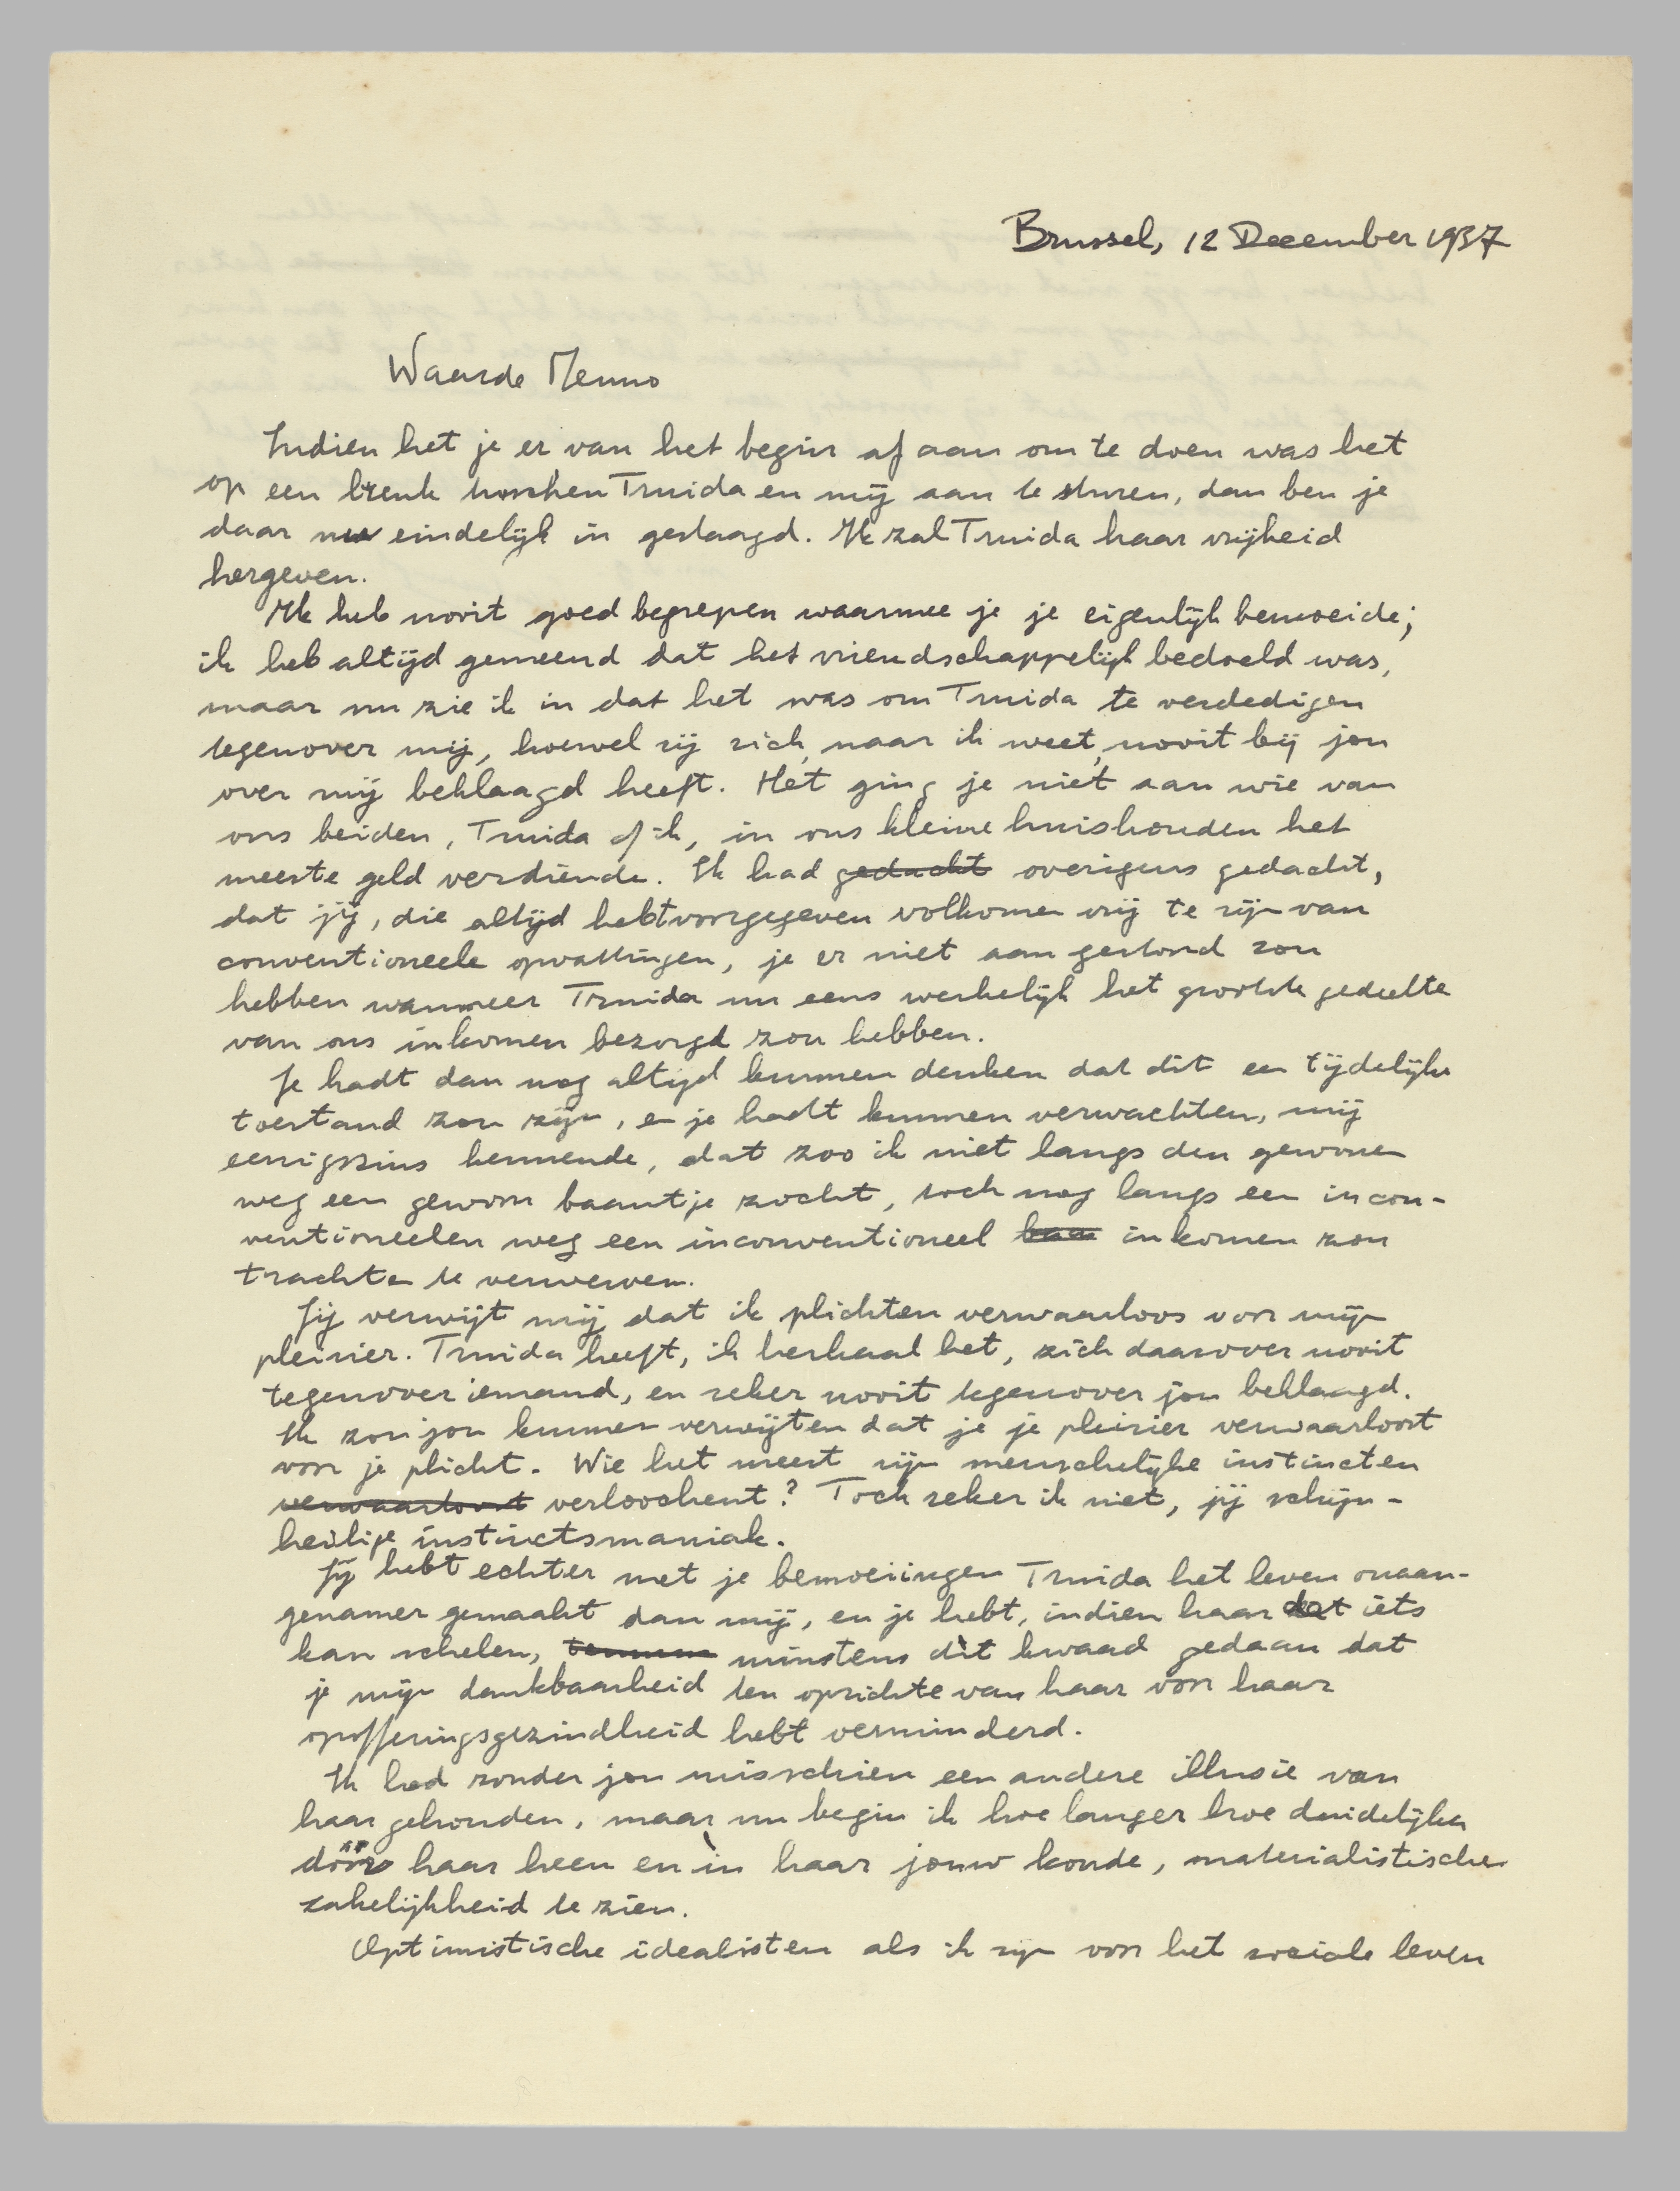 Brussel, 12 December 1937
Waarde Menno
Indien het je er van het begin af aan om te doen was het
op een breuk tusschen Truida en mij aan te sturen, dan ben je
daar nu eindelijk in geslaagd. Ik zal Truida haar vrijheid
hergeven.
Ik heb nooit goed begrepen waarmee je je eigenlijk bemoeide;
ik heb altijd gemeend dat het vriendschappelijk bedoeld was,
maar nu zie ik in dat het was om Truida te verdedigen
tegenover mij, hoewel zij zich, naar ik weet, nooit bij jou
over mij beklaagd heeft. Het ging je niet aan wie van
ons beiden, Truida of ik, in ons kleine huishouden het
meeste geld verdiende. Ik had gedacht overigens gedacht,
dat jij, die altijd hebt voorgegeven volkomen vrij te zijn van
conventioneele opvattingen, je er niet aan gestoord zou
hebben wanneer Truida nu eens werkelijk het grootste gedeelte
van ons inkomen bezorgd zou hebben.
Je hadt dan nog altijd kunnen denken dat dit een tijdelijke
toestand zou zijn, en je hadt kunnen verwachten, mij
eenigszins kennende, dat zoo ik niet langs den gewonen
weg een gewoon baantje zocht, toch nog langs een incon-
ventioneelen weg een inconventioneel baa inkomen zou
trachten te verwerven.
Jij verwijt mij dat ik plichten verwaarloos voor mijn
pleizier. Truida heeft, ik herhaal het, zich daarover nooit
tegenover iemand, en zeker nooit tegenover jou beklaagd.
Ik zou jou kunnen verwijten dat je je pleizier verwaarloost
voor je plicht. Wie het meest zijn menschelijke instincten
verwaarloost verloochent? Toch zeker ik niet, jij schijn-
heilige instinctsmaniak.
Jij hebt echter met je bemoeiingen Truida het leven onaan-
genamer gemaakt dan mij, en je hebt, indien haar dat iets
kan schelen, minstens dìt kwaad gedaan dat
je mijn dankbaarheid ten opzichte van haar voor haar
opofferingsgezindheid hebt verminderd.
Ik had zonder jou misschien een andere illusie van
haar gehouden, maar nu begin ik hoe langer hoe duidelijker
dóór haar heen en ìn haar jouw koude, materialistische
zakelijkheid te zien.
Optimistische idealisten als ik zijn voor het sociale leven